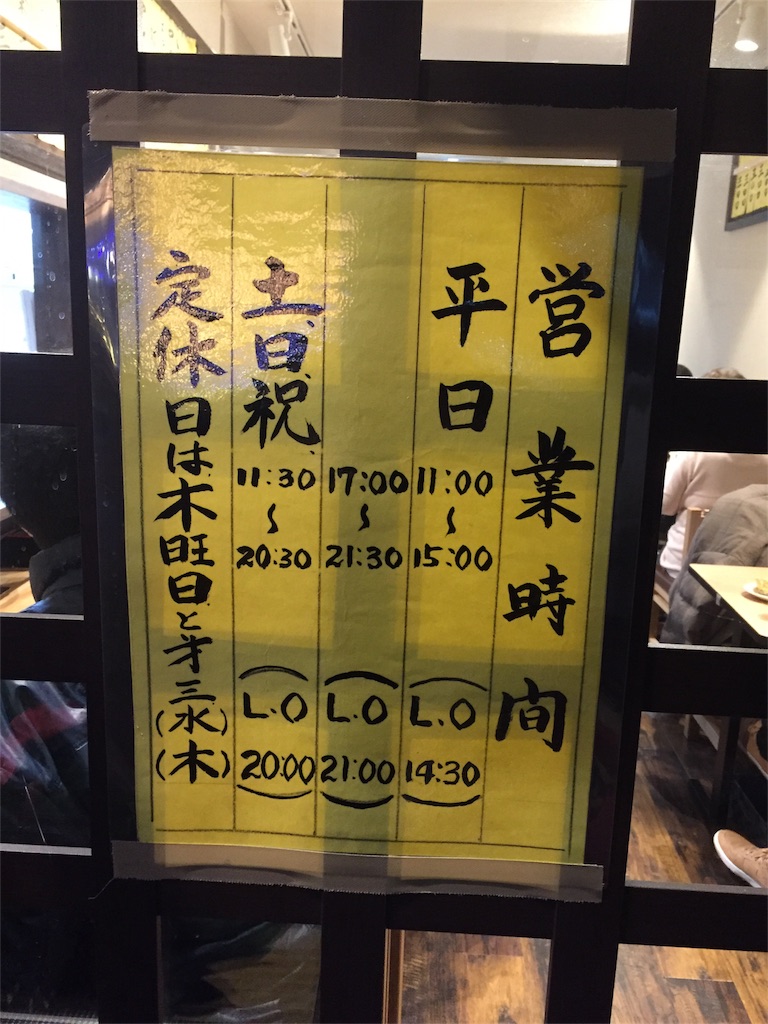 営業時間
平日 11:00〜15:00 (L.O 14:30)
17:00〜21:30 (L.O 21:00)
土日、祝、 11:30〜20:30 (L.O 20:00)
定休日は木旺日と第三(水)(木)